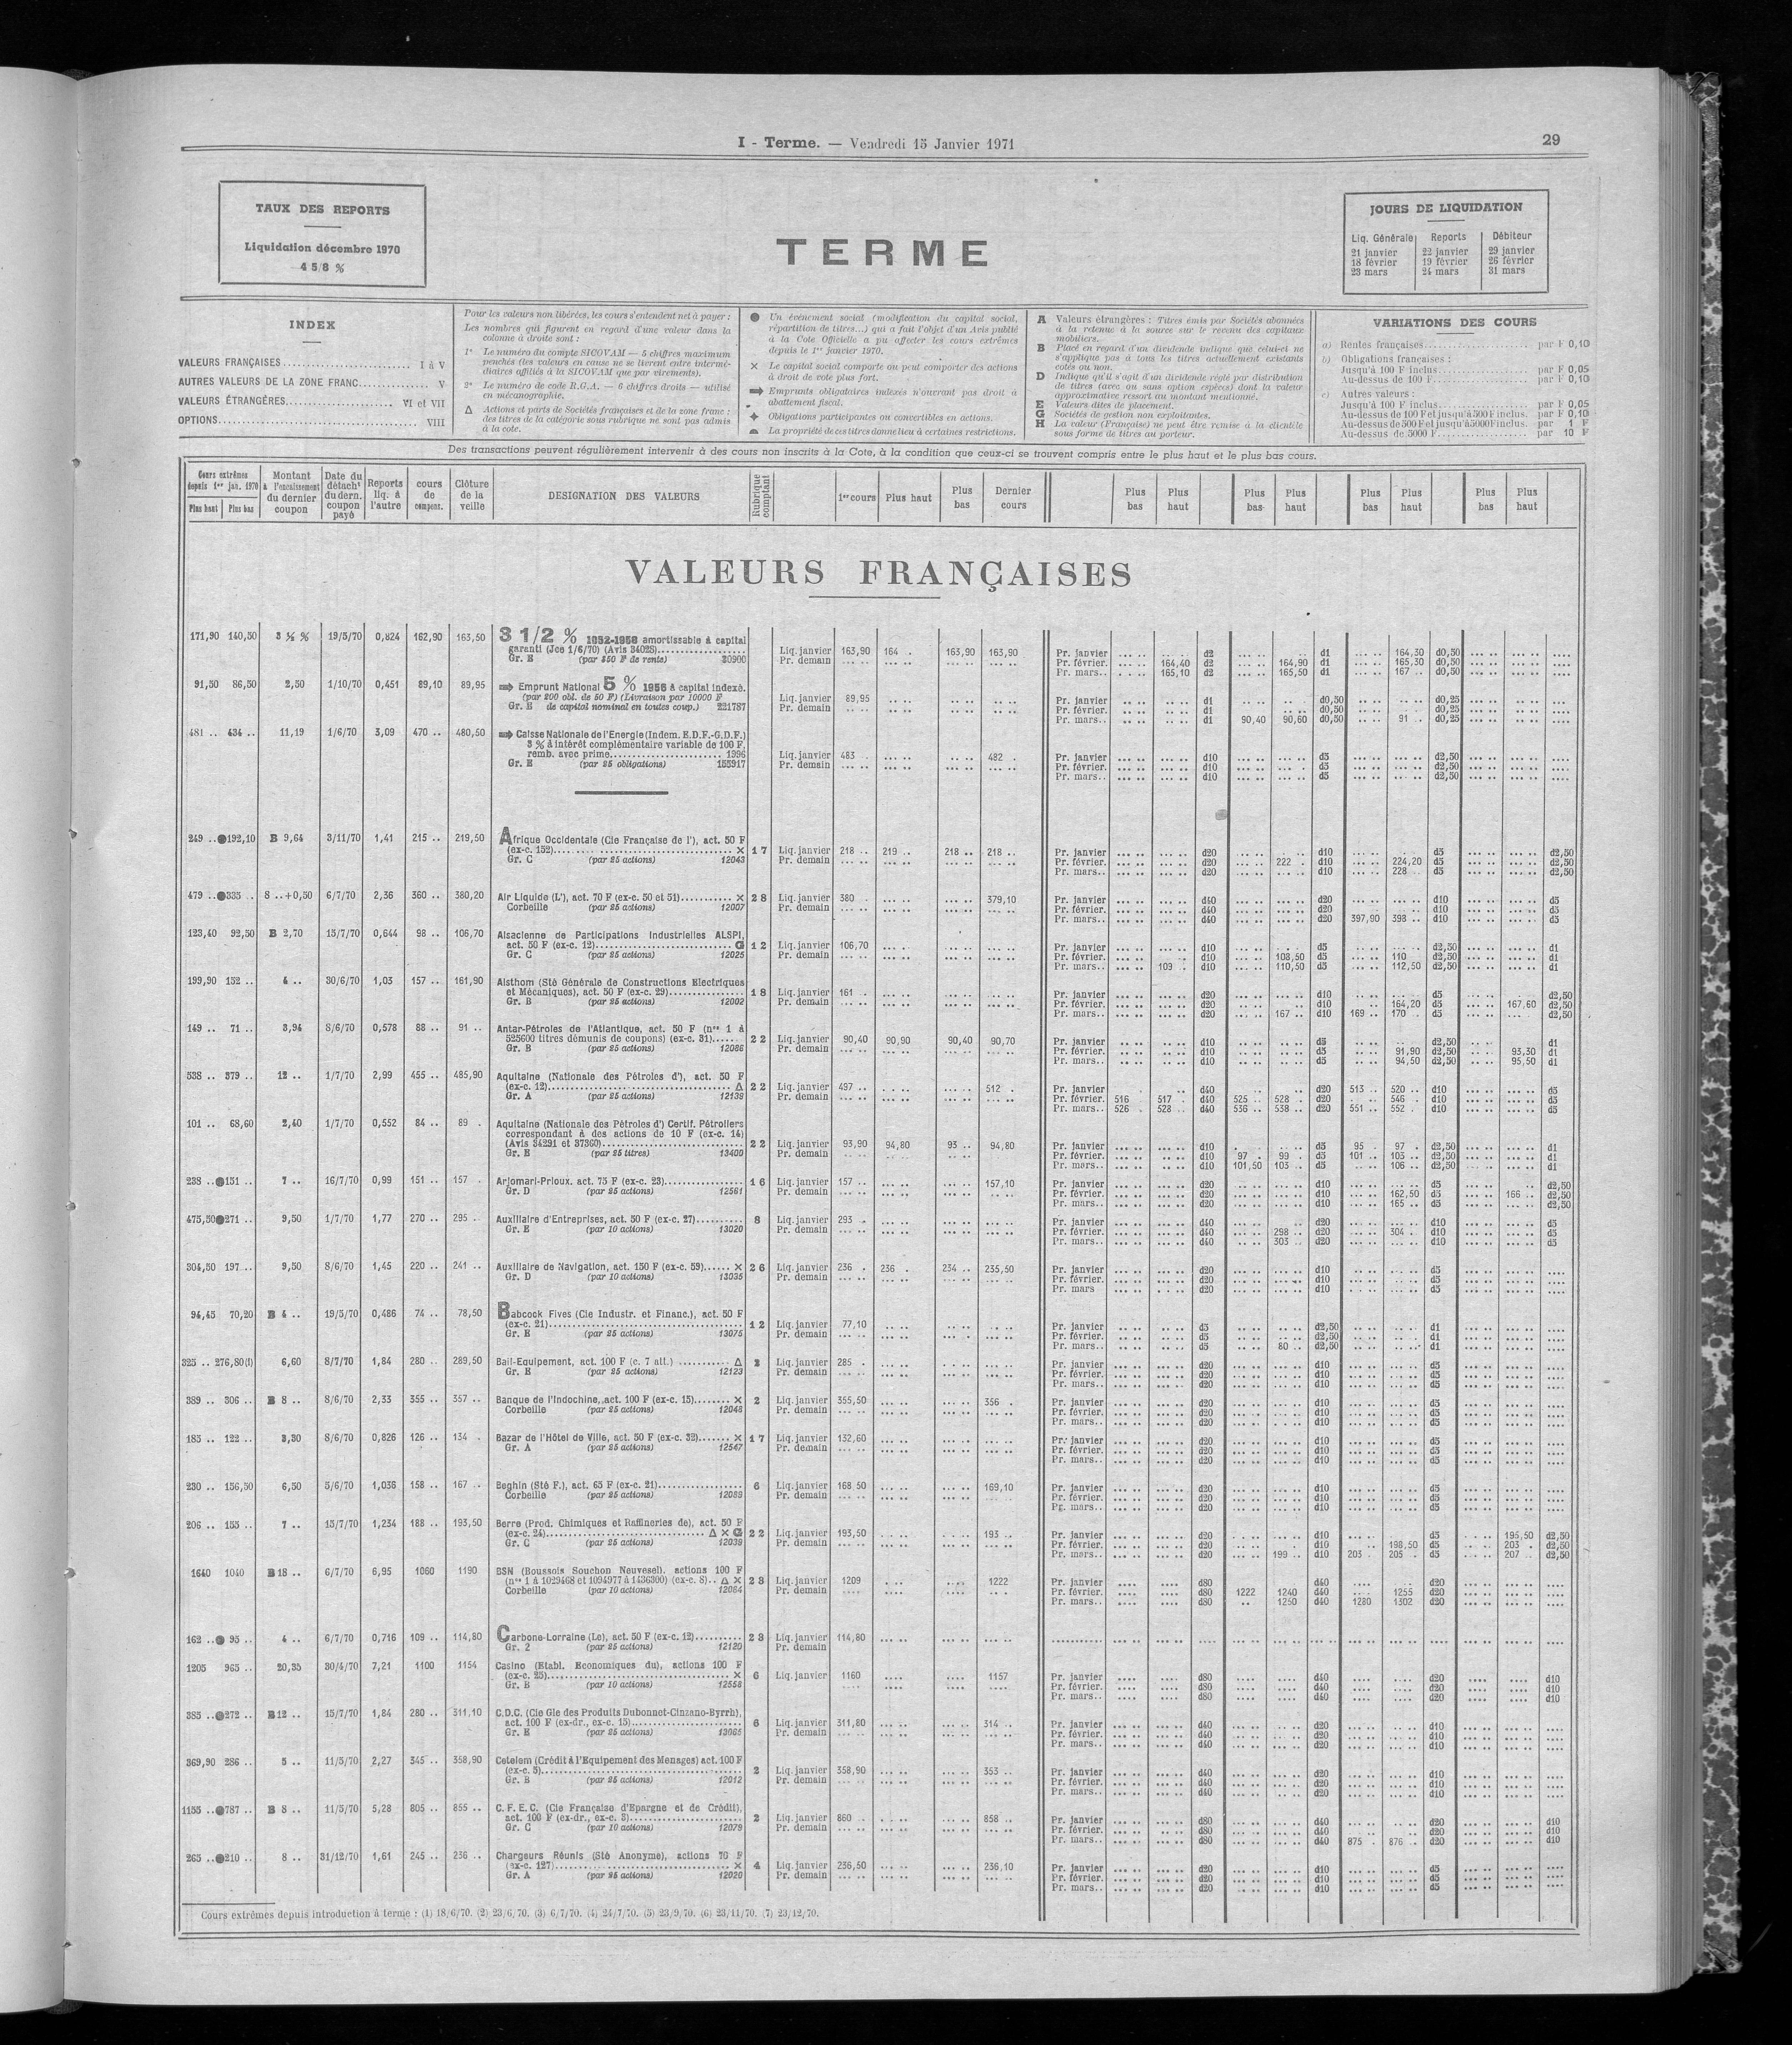 I - Terme. — Vendredi 15 Janvier 1971
29
TAUX DES REPORTS
Liquidation décembre 1970
4 5/8 %
TERME
JOURS DE LIQUIDATION
Liq. Générale Reports Débiteur
21 janvier 22 janvier 29 janvier
18 février 19 février 26 février
23 mars 24 mars 31 mars
INDEX
VALEURS FRANÇAISES I à V
AUTRES VALEURS DE LA ZONE FRANC V
VALEURS ÉTRANGÈRES VI et VII
OPTIONS VIII
Pour les valeurs non libérées, les cours s'entendent net à payer :
Les nombres qui figurent en regard d'une valeur dans la
colonne à droite sont :
1° Le numéro du compte SICOVAM — 5 chiffres maximum
penchés (les valeurs en cause ne se livrent entre intermé-
diaires affiliés à la SICOVAM que par virements).
2° Le numéro de code R.G.A. — 6 chiffres droits — utilisé
en mécanographie.
Δ Actions et parts de Sociétés françaises et de la zone franc :
des titres de la catégorie sous rubrique ne sont pas admis
à la cote.
● Un événement social (modification du capital social,
répartition de titres...) qui a fait l'objet d'un Avis publié
à la Cote Officielle a pu affecter les cours extrêmes
depuis le 1er janvier 1970.
× Le capital social comporte ou peut comporter des actions
à droit de vote plus fort.
⇒ Emprunts obligataires indexés n'ouvrant pas droit à
abattement fiscal.
✦ Obligations participantes ou convertibles en actions.
La propriété de ces titres donne lieu à certaines restrictions.
A Valeurs étrangères : Titres émis par Sociétés abonnées
à la retenue à la source sur le revenu des capitaux
mobiliers.
B Placé en regard d'un dividende indique que celui-ci ne
s'applique pas à tous les titres actuellement existants
cotés ou non.
D Indique qu'il s'agit d'un dividende réglé par distribution
de titres (avec ou sans option espèces) dont la valeur
approximative ressort au montant mentionné.
E Valeurs dites de placement.
G Sociétés de gestion non exploitantes.
H La valeur (Française) ne peut être remise à la clientèle
sous forme de titres au porteur.
VARIATIONS DES COURS
a) Rentes françaises par F 0,10
b) Obligations françaises :
Jusqu'à 100 F inclus par F 0,05
Au-dessus de 100 F par F 0,10
c) Autres valeurs :
Jusqu'à 100 F inclus par F 0,05
Au-dessus de 100 F et jusqu'à 500 F inclus. par F 0,10
Au-dessus de 500 F et jusqu'à 5000 F inclus. par 1 F
Au-dessus de 5000 F par 10 F
Des transactions peuvent régulièrement intervenir à des cours non inscrits à la Cote, à la condition que ceux-ci se trouvent compris entre le plus haut et le plus bas cours.
Cours extrêmes depuis 1er jan. 1970 Plus haut Plus bas
Montant à l'encaissement du dernier coupon
Date du détacht du dern. coupon payé
Reports liq. à l'autre
cours de compens.
Clôture de la veille
DESIGNATION DES VALEURS
Rubrique comptant
1er cours Plus haut Plus bas Dernier cours
Plus bas Plus haut Plus bas Plus haut Plus bas Plus haut Plus bas Plus haut
VALEURS FRANÇAISES
171,90 140,50 3 ½ % 19/5/70 0,824 162,90 163,50 3 1/2 % 1952-1958 amortissable à capital
garanti (Jce 1/6/70) (Avis 34028) Liq. janvier 163,90 164 . 163,90 163,90 Pr. janvier d2 d1 164,30 d0,50
Gr. E (par 350 F de rente) 30900 Pr. demain Pr. février. 164,40 d2 164,90 d1 165,30 d0,50
Pr. mars.. 165,10 d2 165,50 d1 167 .. d0,50
91,50 86,50 2,50 1/10/70 0,451 89,10 89,95 ⇒ Emprunt National 5 % 1956 à capital indexé.
(par 200 obl. de 50 F) (Livraison par 10000 F Liq. janvier 89,95 Pr. janvier d1 d0,50 d0,25
Gr. E de capital nominal en toutes coup.) 221787 Pr. demain Pr. février. d1 d0,50 d0,25
Pr. mars.. d1 90,40 90,60 d0,50 91 .. d0,25
481 .. 434 .. 11,19 1/6/70 3,09 470 .. 480,50 ⇒ Caisse Nationale de l'Energie (Indem. E.D.F.-G.D.F.)
3 % à intérêt complémentaire variable de 100 F,
remb. avec prime 1996 Liq. janvier 483 . 482 . Pr. janvier d10 d5 d2,50
Gr. E (par 25 obligations) 155917 Pr. demain Pr. février. d10 d5 d2,50
Pr. mars.. d10 d5 d2,50
249 ..●192,10 B 9,64 3/11/70 1,41 215 .. 219,50 Afrique Occidentale (Cie Française de l'), act. 50 F
(ex-c. 152) × 17 Liq. janvier 218 .. 219 .. 218 .. 218 .. Pr. janvier d20 d10 d5 d2,50
Gr. C (par 25 actions) 12043 Pr. demain Pr. février. d20 222 . d10 224,20 d5 d2,50
Pr. mars.. d20 d10 228 .. d5 d2,50
479 ..●335 .. 8 ..+0,50 6/7/70 2,36 360 .. 380,20 Air Liquide (L'), act. 70 F (ex-c. 50 et 51) × 28 Liq. janvier 380 . 379,10 Pr. janvier d40 d20 d10 d5
Corbeille (par 25 actions) 12007 Pr. demain Pr. février. d40 d20 d10 d5
Pr. mars.. d40 d20 397,90 398 .. d10 d5
123,40 92,50 B 2,70 15/7/70 0,644 98 .. 106,70 Alsacienne de Participations Industrielles ALSPI,
act. 50 F (ex-c. 12) G 12 Liq. janvier 106,70 Pr. janvier d10 d5 d2,50 d1
Gr. C (par 25 actions) 12025 Pr. demain Pr. février. d10 108,50 d5 110 .. d2,50 d1
Pr. mars.. 109 .. d10 110,50 d5 112,50 d2,50 d1
199,90 152 .. 4 .. 30/6/70 1,03 157 .. 161,90 Alsthom (Sté Générale de Constructions Electriques
et Mécaniques), act. 50 F (ex-c. 29) 18 Liq. janvier 161 . Pr. janvier d20 d10 d5 d2,50
Gr. B (par 25 actions) 12002 Pr. demain Pr. février. d20 d10 164,20 d5 167,60 d2,50
Pr. mars.. d20 167 .. d10 169 .. 170 .. d5 d2,50
149 .. 71 .. 3,94 8/6/70 0,578 88 .. 91 .. Antar-Pétroles de l'Atlantique, act. 50 F (nos 1 à
525600 titres démunis de coupons) (ex-c. 31) 22 Liq. janvier 90,40 90,90 90,40 90,70 Pr. janvier d10 d5 d2,50 d1
Gr. B (par 25 actions) 12086 Pr. demain Pr. février. d10 d5 91,90 d2,50 93,30 d1
Pr. mars.. d10 d5 94,50 d2,50 95,50 d1
538 .. 379 .. 12 .. 1/7/70 2,99 455 .. 485,90 Aquitaine (Nationale des Pétroles d'), act. 50 F
(ex-c. 12) Δ 22 Liq. janvier 497 .. 512 . Pr. janvier d40 d20 513 .. 520 .. d10 d5
Gr. A (par 25 actions) 12139 Pr. demain Pr. février. 516 517 .. d40 525 .. 528 .. d20 546 .. d10 d5
Pr. mars.. 526 . 528 .. d40 536 .. 538 .. d20 551 .. 552 . d10 d5
101 .. 68,60 2,40 1/7/70 0,552 84 .. 89 . Aquitaine (Nationale des Pétroles d') Certif. Pétroliers
correspondant à des actions de 10 F (ex-c. 14)
(Avis 34291 et 37360) 22 Liq. janvier 93,90 94,80 93 .. 94,80 Pr. janvier d10 d5 95 .. 97 . d2,50 d1
Gr. E (par 25 titres) 13400 Pr. demain Pr. février. d10 97 . 99 . d5 101 .. 103 .. d2,50 d1
Pr. mars.. d10 101,50 103 .. d5 106 .. d2,50 d1
238 ..●151 .. 7 .. 16/7/70 0,99 151 .. 157 . Arjomari-Prioux, act. 75 F (ex-c. 23) 16 Liq. janvier 157 .. 157,10 Pr. janvier d20 d10 d5 d2,50
Gr. D (par 25 actions) 12561 Pr. demain Pr. février. d20 d10 162,50 d5 166 .. d2,50
Pr. mars.. d20 d10 165 .. d5 d2,50
475,50●271 .. 9,50 1/7/70 1,77 270 .. 295 .. Auxiliaire d'Entreprises, act. 50 F (ex-c. 27) 8 Liq. janvier 293 . Pr. janvier d40 d20 d10 d5
Gr. E (par 10 actions) 13020 Pr. demain Pr. février. d40 298 .. d20 304 . d10 d5
Pr. mars.. d40 303 .. d20 d10 d5
304,50 197 .. 9,50 8/6/70 1,45 220 .. 241 .. Auxiliaire de Navigation, act. 150 F (ex-c. 59) × 26 Liq. janvier 236 . 236 . 234 .. 235,50 Pr. janvier d20 d10 d5
Gr. D (par 10 actions) 13035 Pr. demain Pr. février. d20 d10 d5
Pr. mars d20 d10 d5
94,45 70,20 B 4 .. 19/5/70 0,486 74 .. 78,50 Babcock Fives (Cie Industr. et Financ.), act. 50 F
(ex-c. 21) 12 Liq. janvier 77,10 Pr. janvier d5 d2,50 d1
Gr. E (par 25 actions) 13075 Pr. demain Pr. février. d5 d2,50 d1
Pr. mars.. d5 80 .. d2,50 d1
325 .. 276,80(1) 6,60 8/7/70 1,84 280 .. 289,50 Bail-Equipement, act. 100 F (c. 7 att.) Δ 2 Liq. janvier 285 . Pr. janvier d20 d10 d5
Gr. E (par 25 actions) 12123 Pr. demain Pr. février. d20 d10 d5
Pr. mars.. d20 d10 d5
389 .. 306 .. B 8 .. 8/6/70 2,33 355 .. 357 .. Banque de l'Indochine, act. 100 F (ex-c. 15) × 2 Liq. janvier 355,50 356 . Pr. janvier d20 d10 d5
Corbeille (par 25 actions) 12048 Pr. demain Pr. février. d20 d10 d5
Pr. mars.. d20 d10 d5
185 .. 122 .. 3,30 8/6/70 0,826 126 .. 134 . Bazar de l'Hôtel de Ville, act. 50 F (ex-c. 32) × 17 Liq. janvier 132,60 Pr. janvier d20 d10 d5
Gr. A (par 25 actions) 12547 Pr. demain Pr. février. d20 d10 d5
Pr. mars.. d20 d10 d5
230 .. 156,50 6,50 5/6/70 1,036 158 .. 167 .. Beghin (Sté F.), act. 65 F (ex-c. 21) 6 Liq. janvier 168 50 169,10 Pr. janvier d20 d10 d5
Corbeille (par 25 actions) 12089 Pr. demain Pr. février. d20 d10 d5
Pr. mars.. d20 d10 d5
206 .. 155 .. 7 .. 15/7/70 1,234 188 .. 193,50 Berre (Prod. Chimiques et Raffineries de), act. 50 F
(ex-c. 24) Δ × G 22 Liq. janvier 193,50 193 .. Pr. janvier d20 d10 d5 195,50 d2,50
Gr. C (par 25 actions) 12039 Pr. demain Pr. février. d20 d10 198,50 d5 203 . d2,50
Pr. mars.. d20 199 .. d10 203 . 205 .. d5 207 .. d2,50
1640 1040 B 18 .. 6/7/70 6,95 1060 1190 BSN (Boussois Souchon Neuvesel), actions 100 F
(nos 1 à 1029468 et 1094977 à 1436300) (ex-c. 8) Δ × 23 Liq. janvier 1209 1222 Pr. janvier d80 d40 d20
Corbeille (par 10 actions) 12064 Pr. demain Pr. février. d80 1222 1240 d40 1255 d20
Pr. mars.. d80 1250 d40 1280 1302 d20
162 ..● 95 .. 4 .. 6/7/70 0,716 109 .. 114,80 Carbone-Lorraine (Le), act. 50 F (ex-c. 12) 23 Liq. janvier 114,80
Gr. 2 (par 25 actions) 12120 Pr. demain
1205 965 .. 20,35 30/4/70 7,21 1100 1154 Casino (Etabl. Economiques du), actions 100 F
(ex-c. 25) × 6 Liq. janvier 1160 1157 Pr. janvier d80 d40 d20 d10
Gr. B (par 10 actions) 12558 Pr. février. d80 d40 d20 d10
Pr. mars.. d80 d40 d20 d10
385 ..●272 .. B 12 .. 15/7/70 1,84 280 .. 311,10 C.D.C. (Cie Gle des Produits Dubonnet-Cinzano-Byrrh),
act. 100 F (ex-dr., ex-c. 15) 6 Liq. janvier 311,80 314 .. Pr. janvier d40 d20 d10
Gr. E (par 25 actions) 13065 Pr. demain Pr. février. d40 d20 d10
Pr. mars.. d40 d20 d10
369,90 286 .. 5 .. 11/5/70 2,27 345 .. 358,90 Cetelem (Crédit à l'Equipement des Menages) act. 100 F
(ex-c. 5) 2 Liq. janvier 358,90 353 .. Pr. janvier d40 d20 d10
Gr. B (par 25 actions) 12012 Pr. demain Pr. février. d40 d20 d10
Pr. mars.. d40 d20 d10
1155 ..●787 .. B 8 .. 11/5/70 5,28 805 .. 855 .. C. F. E. C. (Cie Française d'Epargne et de Crédit),
act. 100 F (ex-dr., ex-c. 3) 2 Liq. janvier 860 . 858 .. Pr. janvier d80 d40 d20 d10
Gr. C (par 10 actions) 12079 Pr. demain Pr. février. d80 d40 d20 d10
Pr. mars.. d80 d40 875 . 876 .. d20 d10
265 ..●210 .. 8 .. 31/12/70 1,61 245 .. 236 .. Chargeurs Réunis (Sté Anonyme), actions 70 F
(ex-c. 127) × 4 Liq. janvier 236,50 236,10 Pr. janvier d20 d10 d5
Gr. A (par 25 actions) 12020 Pr. demain Pr. février. d20 d10 d5
Pr. mars.. d20 d10 d5
Cours extrêmes depuis introduction à terme : (1) 18/6/70. (2) 23/6/70. (3) 6/7/70. (4) 24/7/70. (5) 23/9/70. (6) 23/11/70. (7) 23/12/70.